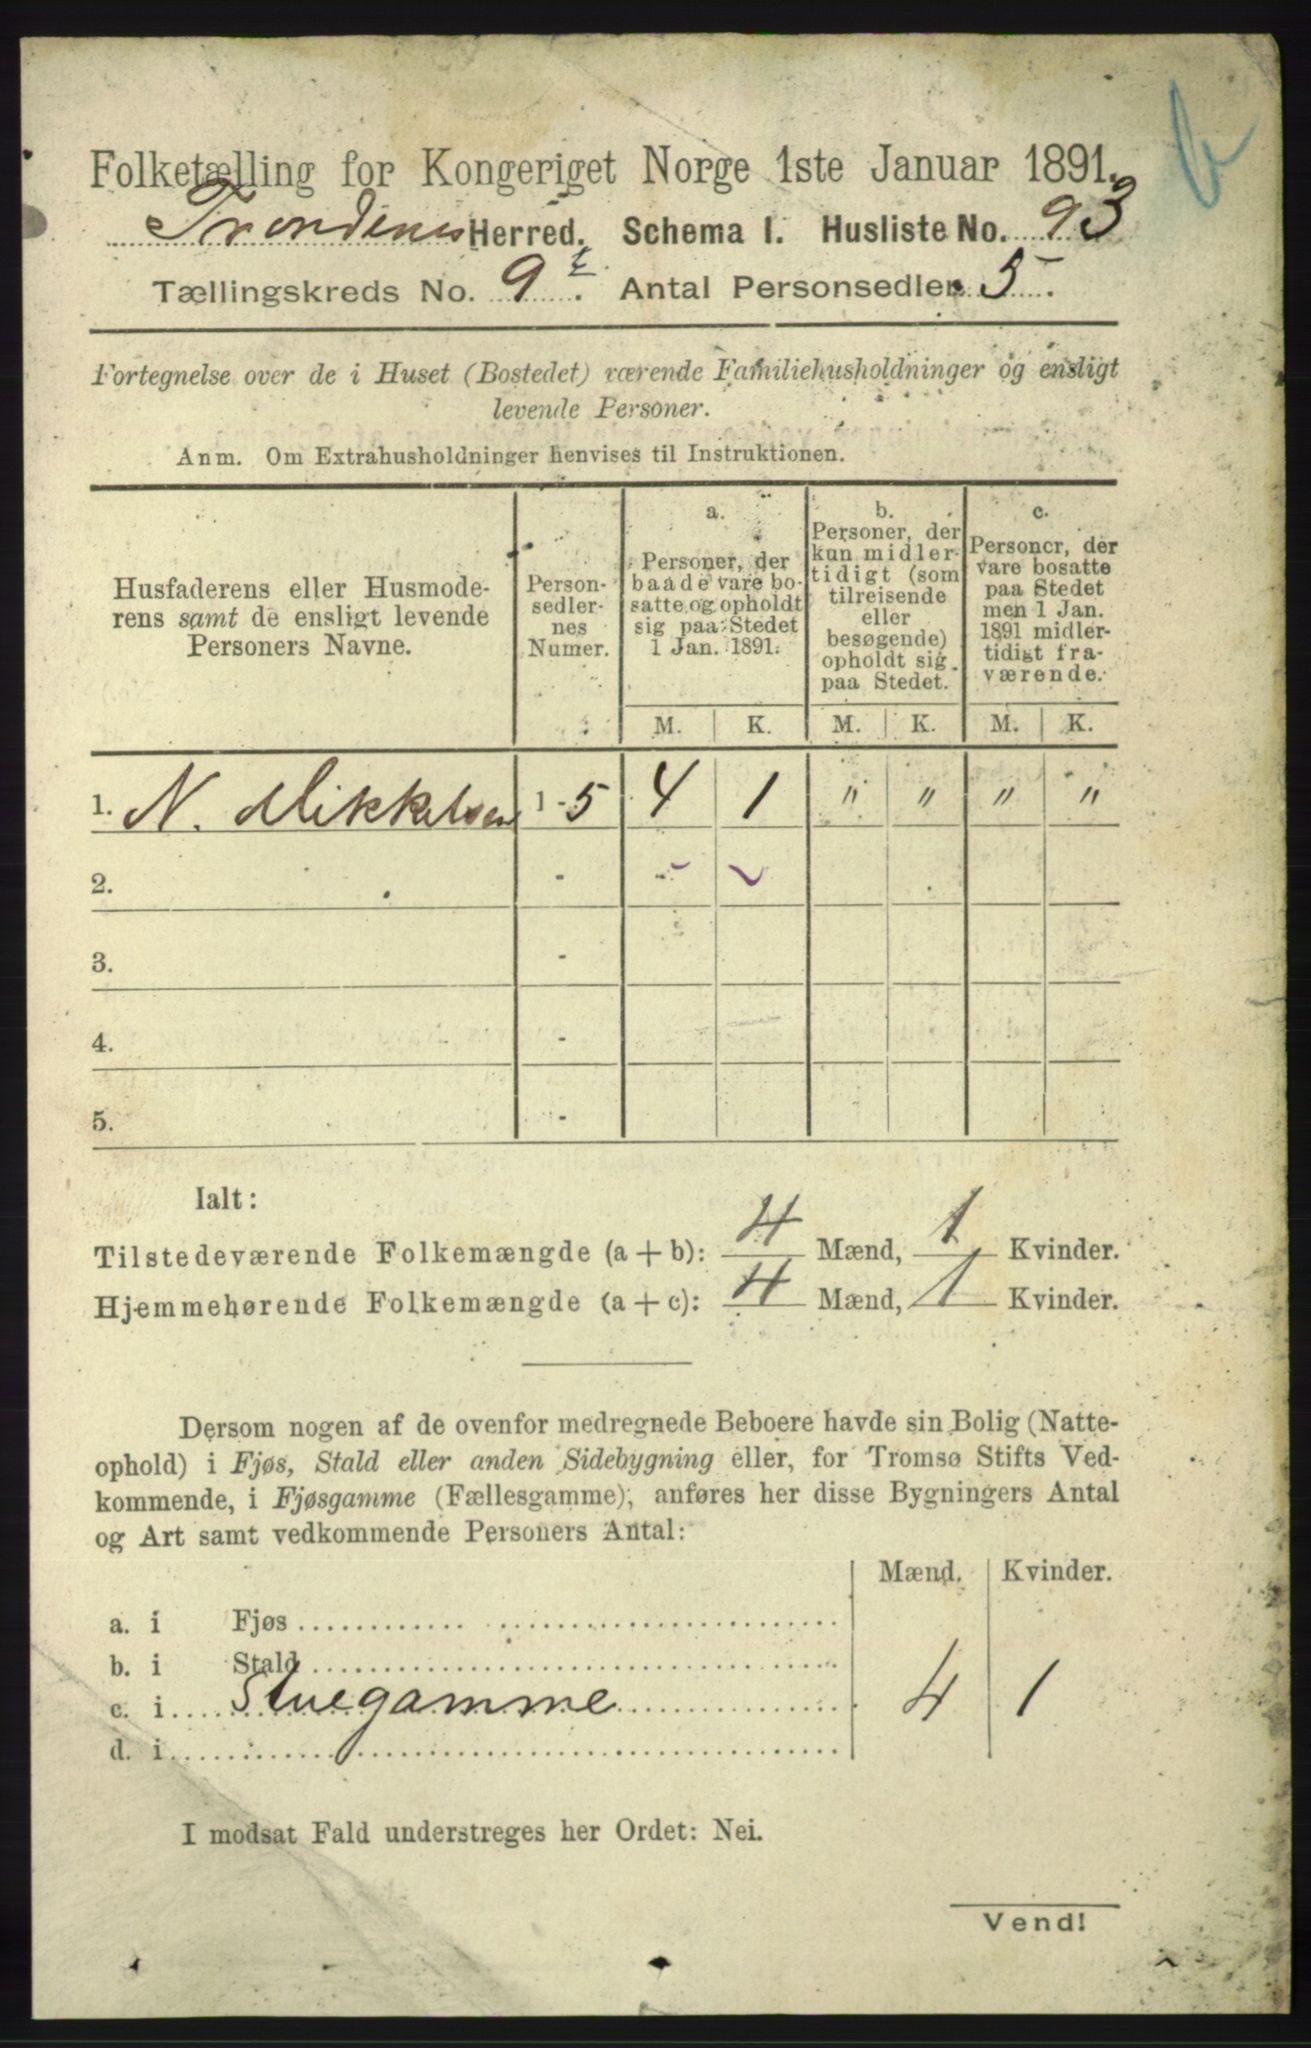 Folketælling for Kongeriget Norge 1ste Januar 1891.
Trondenes Herred. Schema I. Husliste No. 93
Tællingskreds No. 9 E. Antal Personsedler 5.
Fortegnelse over de i Huset (Bostedet) værende Familiehusholdninger og ensligt
levende Personer.
Anm. Om Extrahusholdninger henvises til Instruktionen.
Husfaderens eller Husmode-
rens samt de ensligt levende
Personers Navne.
Person-
sedler-
nes
Numer.
a.
Personer, der
baade vare bo-
satte og opholdt
sig paa Stedet
1 Jan. 1891.
b.
Personer, der
kun midler-
tidigt (som
tilreisende
eller
besøgende)
opholdt sig
paa Stedet.
c.
Personer, der
vare bosatte
paa Stedet
men 1 Jan.
1891 midler-
tidigt fra-
værende.
M. K. M. K. M. K.
1. N. Mikkelsen 1-5 4 1 " " " "
2. -
3. -
4. -
5. -
Ialt:
Tilstedeværende Folkemængde (a+b): 4 Mænd, 1 Kvinder.
Hjemmehørende Folkemængde (a+c): 4 Mænd, 1 Kvinder.
Dersom nogen af de ovenfor medregnede Beboere havde sin Bolig (Natte-
ophold) i Fjøs, Stald eller anden Sidebygning eller, for Tromsø Stifts Ved-
kommende, i Fjøsgamme (Fællesgamme), anføres her disse Bygningers Antal
og Art samt vedkommende Personers Antal:
Mænd. Kvinder.
a. i Fjøs
b. i Stald
c. i Stuegamme 4 1
d. i
I modsat Fald understreges her Ordet: Nei.
Vend!